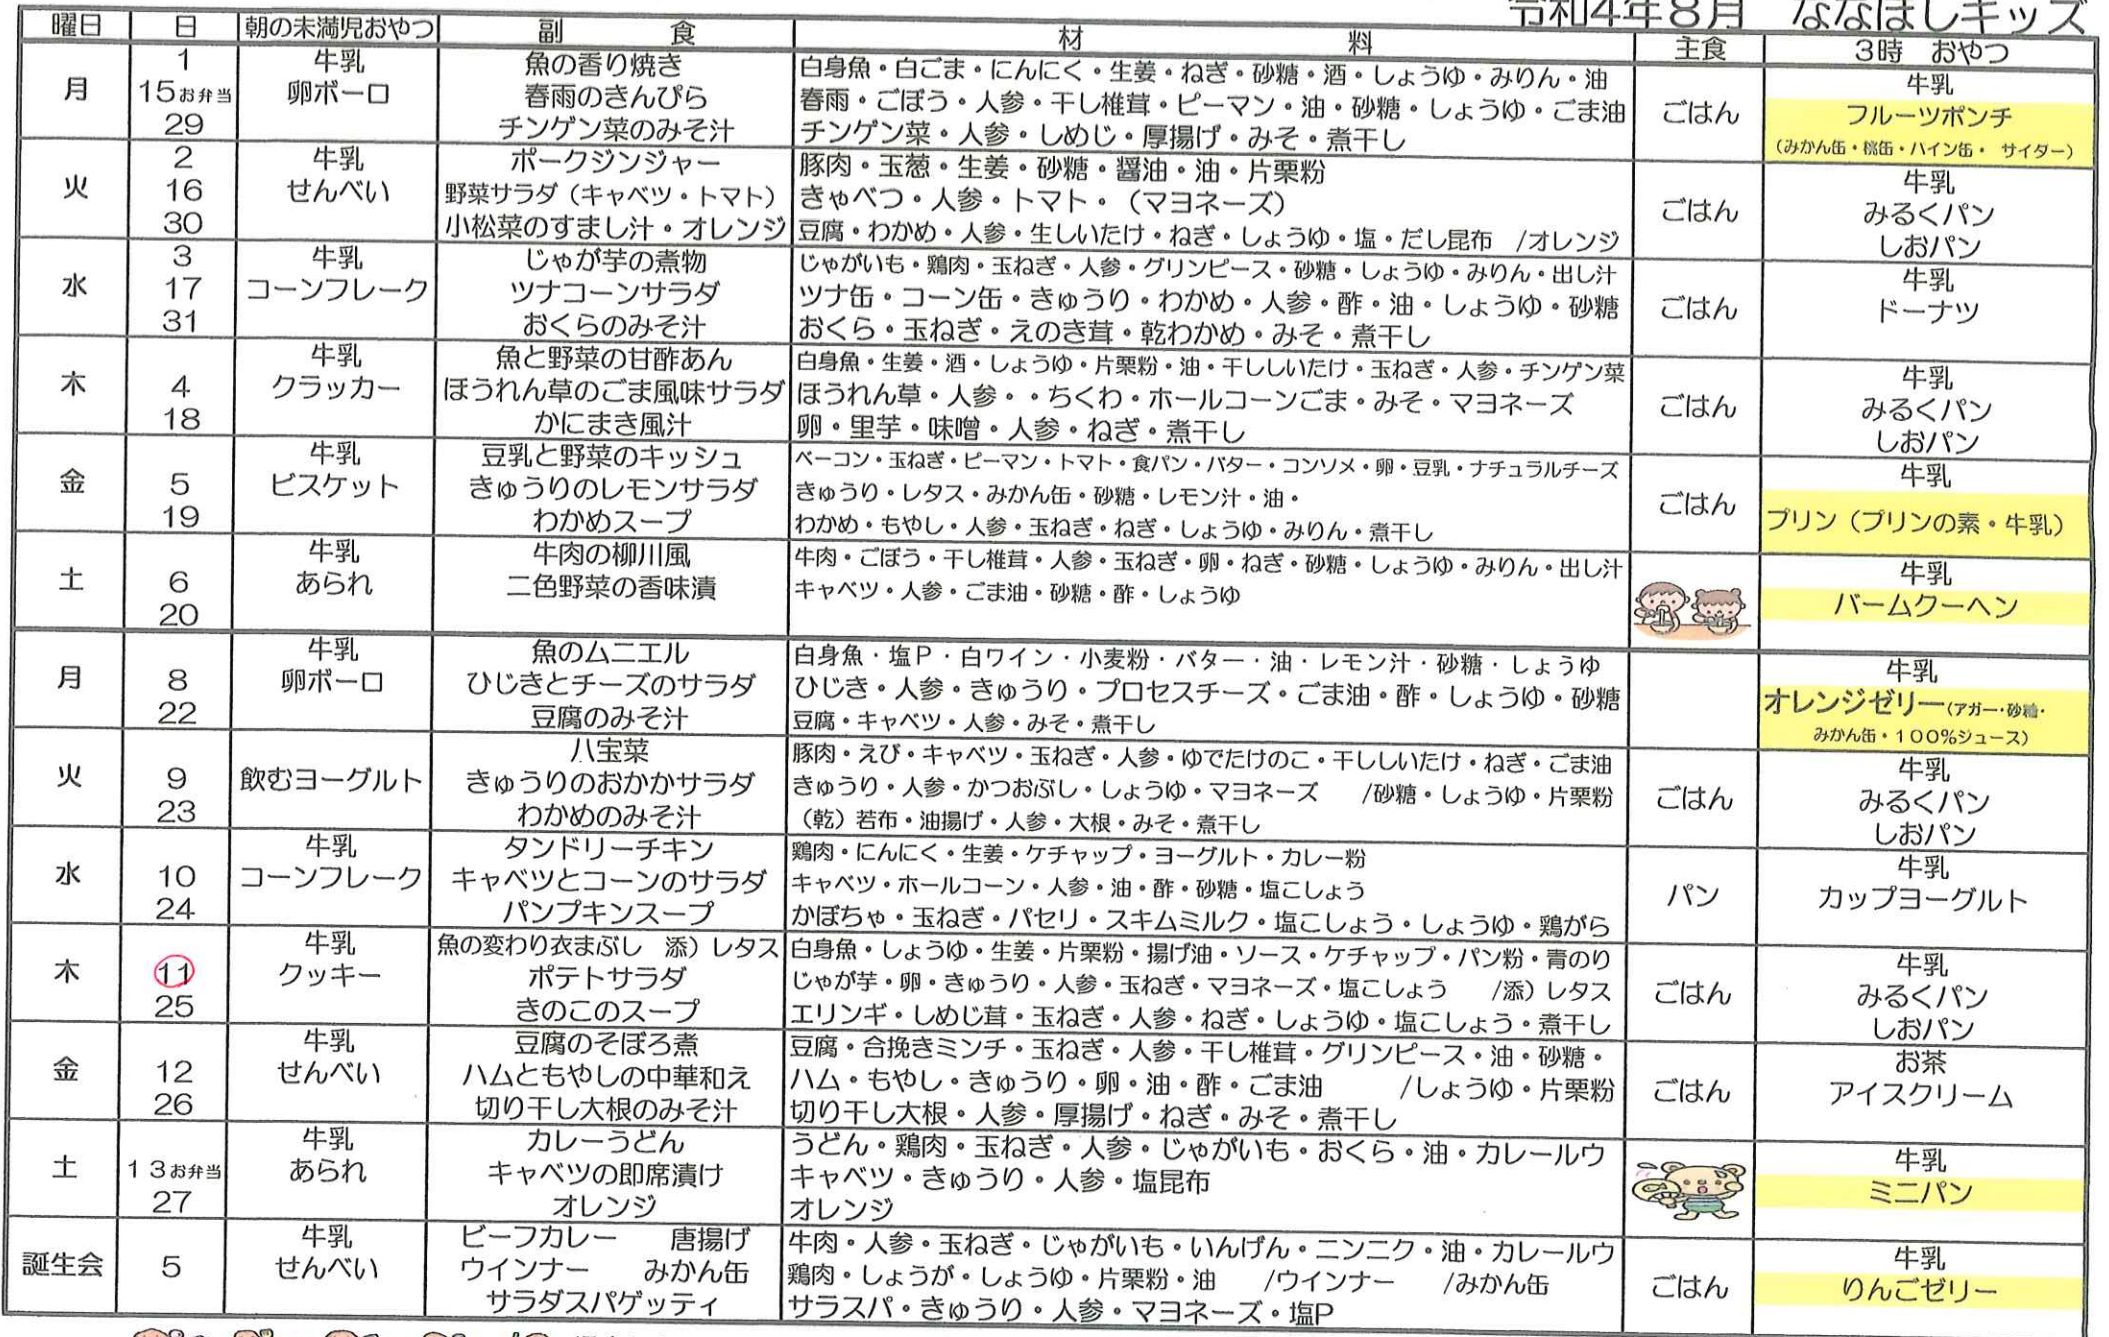 令和4年8月　ななほしキッズ
曜日　日　朝の未満児おやつ　副　食　材　料　主食　3時　おやつ
月
1
15お弁当
29
牛乳
卵ボーロ
魚の香り焼き
春雨のきんぴら
チンゲン菜のみそ汁
白身魚・白ごま・にんにく・生姜・ねぎ・砂糖・酒・しょうゆ・みりん・油
春雨・ごぼう・人参・干し椎茸・ピーマン・油・砂糖・しょうゆ・ごま油
チンゲン菜・人参・しめじ・厚揚げ・みそ・煮干し
ごはん
牛乳
フルーツポンチ
（みかん缶・桃缶・パイン缶・　サイダー）
火
2
16
30
牛乳
せんべい
ポークジンジャー
野菜サラダ（キャベツ・トマト）
小松菜のすまし汁・オレンジ
豚肉・玉葱・生姜・砂糖・醤油・油・片栗粉
きゃべつ・人参・トマト・（マヨネーズ）
豆腐・わかめ・人参・生しいたけ・ねぎ・しょうゆ・塩・だし昆布　/オレンジ
ごはん
牛乳
みるくパン
しおパン
水
3
17
31
牛乳
コーンフレーク
じゃが芋の煮物
ツナコーンサラダ
おくらのみそ汁
じゃがいも・鶏肉・玉ねぎ・人参・グリンピース・砂糖・しょうゆ・みりん・出し汁
ツナ缶・コーン缶・きゅうり・わかめ・人参・酢・油・しょうゆ・砂糖
おくら・玉ねぎ・えのき茸・乾わかめ・みそ・煮干し
ごはん
牛乳
ドーナツ
木
4
18
牛乳
クラッカー
魚と野菜の甘酢あん
ほうれん草のごま風味サラダ
かにまき風汁
白身魚・生姜・酒・しょうゆ・片栗粉・油・干ししいたけ・玉ねぎ・人参・チンゲン菜
ほうれん草・人参・・ちくわ・ホールコーンごま・みそ・マヨネーズ
卵・里芋・味噌・人参・ねぎ・煮干し
ごはん
牛乳
みるくパン
しおパン
金
5
19
牛乳
ビスケット
豆乳と野菜のキッシュ
きゅうりのレモンサラダ
わかめスープ
ベーコン・玉ねぎ・ピーマン・トマト・食パン・バター・コンソメ・卵・豆乳・ナチュラルチーズ
きゅうり・レタス・みかん缶・砂糖・レモン汁・油・
わかめ・もやし・人参・玉ねぎ・ねぎ・しょうゆ・みりん・煮干し
ごはん
牛乳
プリン（プリンの素・牛乳）
土
6
20
牛乳
あられ
牛肉の柳川風
二色野菜の香味漬
牛肉・ごぼう・干し椎茸・人参・玉ねぎ・卵・ねぎ・砂糖・しょうゆ・みりん・出し汁
キャベツ・人参・ごま油・砂糖・酢・しょうゆ
牛乳
バームクーヘン
月
8
22
牛乳
卵ボーロ
魚のムニエル
ひじきとチーズのサラダ
豆腐のみそ汁
白身魚・塩P・白ワイン・小麦粉・バター・油・レモン汁・砂糖・しょうゆ
ひじき・人参・きゅうり・プロセスチーズ・ごま油・酢・しょうゆ・砂糖
豆腐・キャベツ・人参・みそ・煮干し
牛乳
オレンジゼリー（アガー・砂糖・
みかん缶・100%ジュース）
火
9
23
飲むヨーグルト
八宝菜
きゅうりのおかかサラダ
わかめのみそ汁
豚肉・えび・キャベツ・玉ねぎ・人参・ゆでたけのこ・干ししいたけ・ねぎ・ごま油
きゅうり・人参・かつおぶし・しょうゆ・マヨネーズ　/砂糖・しょうゆ・片栗粉
（乾）若布・油揚げ・人参・大根・みそ・煮干し
ごはん
牛乳
みるくパン
しおパン
水
10
24
牛乳
コーンフレーク
タンドリーチキン
キャベツとコーンのサラダ
パンプキンスープ
鶏肉・にんにく・生姜・ケチャップ・ヨーグルト・カレー粉
キャベツ・ホールコーン・人参・油・酢・砂糖・塩こしょう
かぼちゃ・玉ねぎ・パセリ・スキムミルク・塩こしょう・しょうゆ・鶏がら
パン
牛乳
カップヨーグルト
木
11
25
牛乳
クッキー
魚の変わり衣まぶし　添）レタス
ポテトサラダ
きのこのスープ
白身魚・しょうゆ・生姜・片栗粉・揚げ油・ソース・ケチャップ・パン粉・青のり
じゃが芋・卵・きゅうり・人参・玉ねぎ・マヨネーズ・塩こしょう　/添）レタス
エリンギ・しめじ茸・玉ねぎ・人参・ねぎ・しょうゆ・塩こしょう・煮干し
ごはん
牛乳
みるくパン
しおパン
金
12
26
牛乳
せんべい
豆腐のそぼろ煮
ハムともやしの中華和え
切り干し大根のみそ汁
豆腐・合挽きミンチ・玉ねぎ・人参・干し椎茸・グリンピース・油・砂糖・
ハム・もやし・きゅうり・卵・油・酢・ごま油　/しょうゆ・片栗粉
切り干し大根・人参・厚揚げ・ねぎ・みそ・煮干し
ごはん
お茶
アイスクリーム
土
13お弁当
27
牛乳
あられ
カレーうどん
キャベツの即席漬け
オレンジ
うどん・鶏肉・玉ねぎ・人参・じゃがいも・おくら・油・カレールウ
キャベツ・きゅうり・人参・塩昆布
オレンジ
牛乳
ミニパン
誕生会
5
牛乳
せんべい
ビーフカレー　唐揚げ
ウインナー　みかん缶
サラダスパゲッティ
牛肉・人参・玉ねぎ・じゃがいも・いんげん・ニンニク・油・カレールウ
鶏肉・しょうが・しょうゆ・片栗粉・油　/ウインナー　/みかん缶
サラスパ・きゅうり・人参・マヨネーズ・塩P
ごはん
牛乳
りんごゼリー